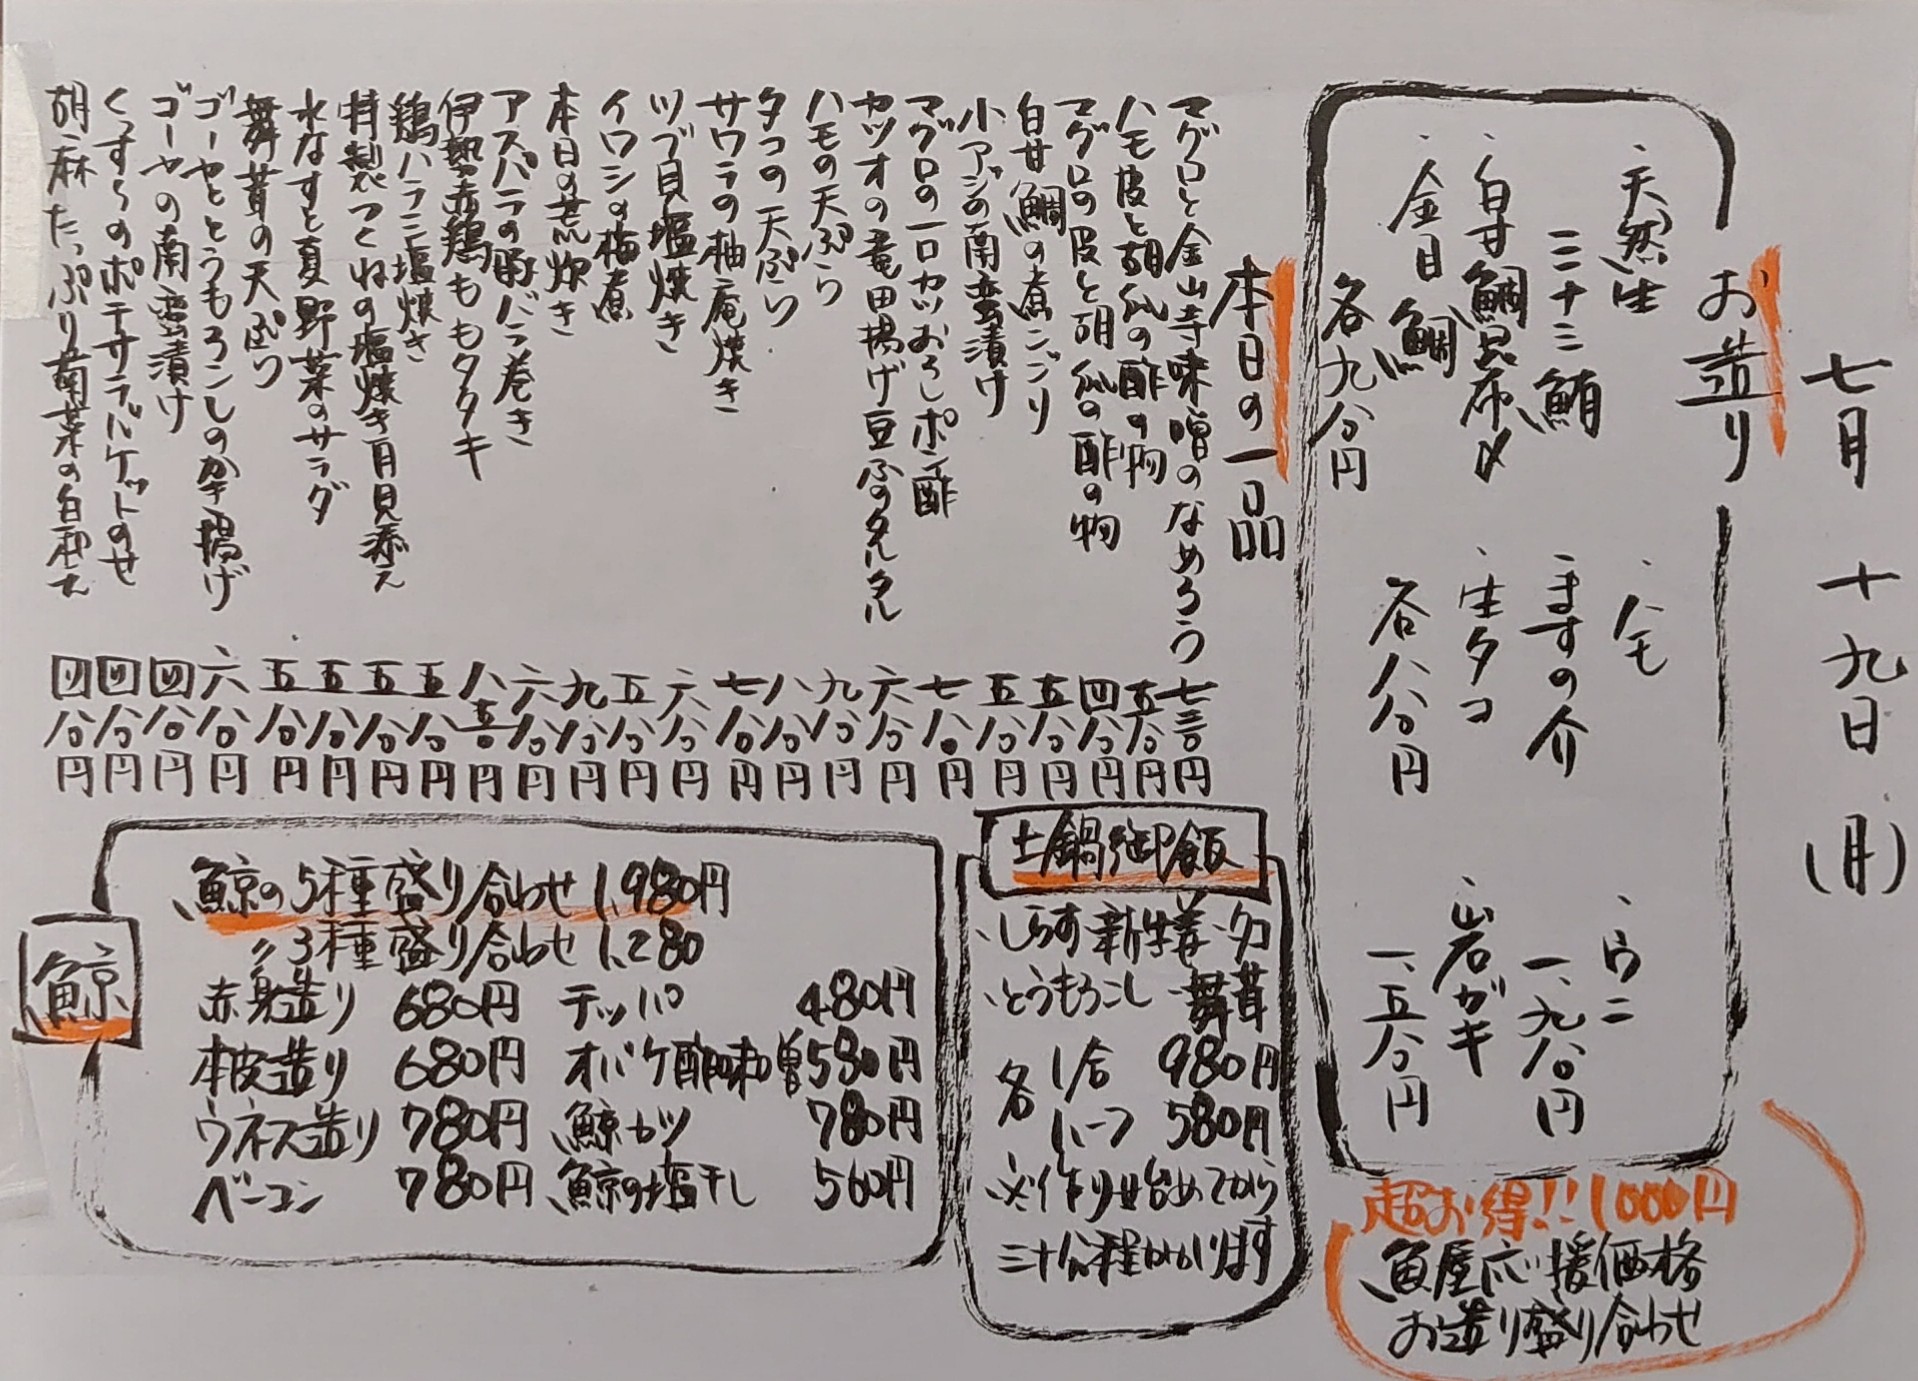 七月十九日(月)
お造り
・天然生
三十三鮪
・白甘鯛昆布〆
・金目鯛
各九〇〇円
・ハモ
・ますの介
・生タコ
各八〇〇円
・ウニ
一、九八〇円
・岩ガキ
一、五〇〇円
超お得!!1000円
魚屋応援価格
お造り盛り合わせ
本日の一品
マグロと金山寺味噌のなめろう 七三〇円
ハモ皮と胡瓜の酢の物 五八〇円
マグロの皮と胡瓜の酢の物 四八〇円
白甘鯛の煮こごり 五八〇円
小アジの南蛮漬け 五八〇円
マグロの一口カツおろしポン酢 七八〇円
カツオの竜田揚げ豆ふのタルタル 六八〇円
ハモの天ぷら 九八〇円
タコの天ぷら 八八〇円
サワラの柚庵焼き 七八〇円
ツブ貝塩焼き 六八〇円
イワシの梅煮 五八〇円
本日の荒炊き 九八〇円
アスパラの豚バラ巻き 六八〇円
伊勢赤鶏ももタタキ 八五〇円
鶏ハラミ塩焼き 五八〇円
特製つくねの塩焼き月見添え 五八〇円
水なすと夏野菜のサラダ 五八〇円
舞茸の天ぷら 五八〇円
ゴーヤととうもろこしのかき揚げ 六八〇円
ゴーヤの南蛮漬け 四八〇円
くっすぐのポテサラバケットのせ 四八〇円
胡麻たっぷり青菜の白和え 四八〇円
土鍋御飯
・しらす・新生姜・タコ
・とうもろこし・舞茸
各 1合 980円
ハーフ 580円
※作り始めてから
三十分程かかります
鯨
鯨の5種盛り合わせ 1,980円
〃3種盛り合わせ 1,280
赤身造り 680円 テッパ 480円
本皮造り 680円 オバケ酢味噌 580円
ウネス造り 780円 鯨カツ 780円
ベーコン 780円 鯨の塩干し 560円